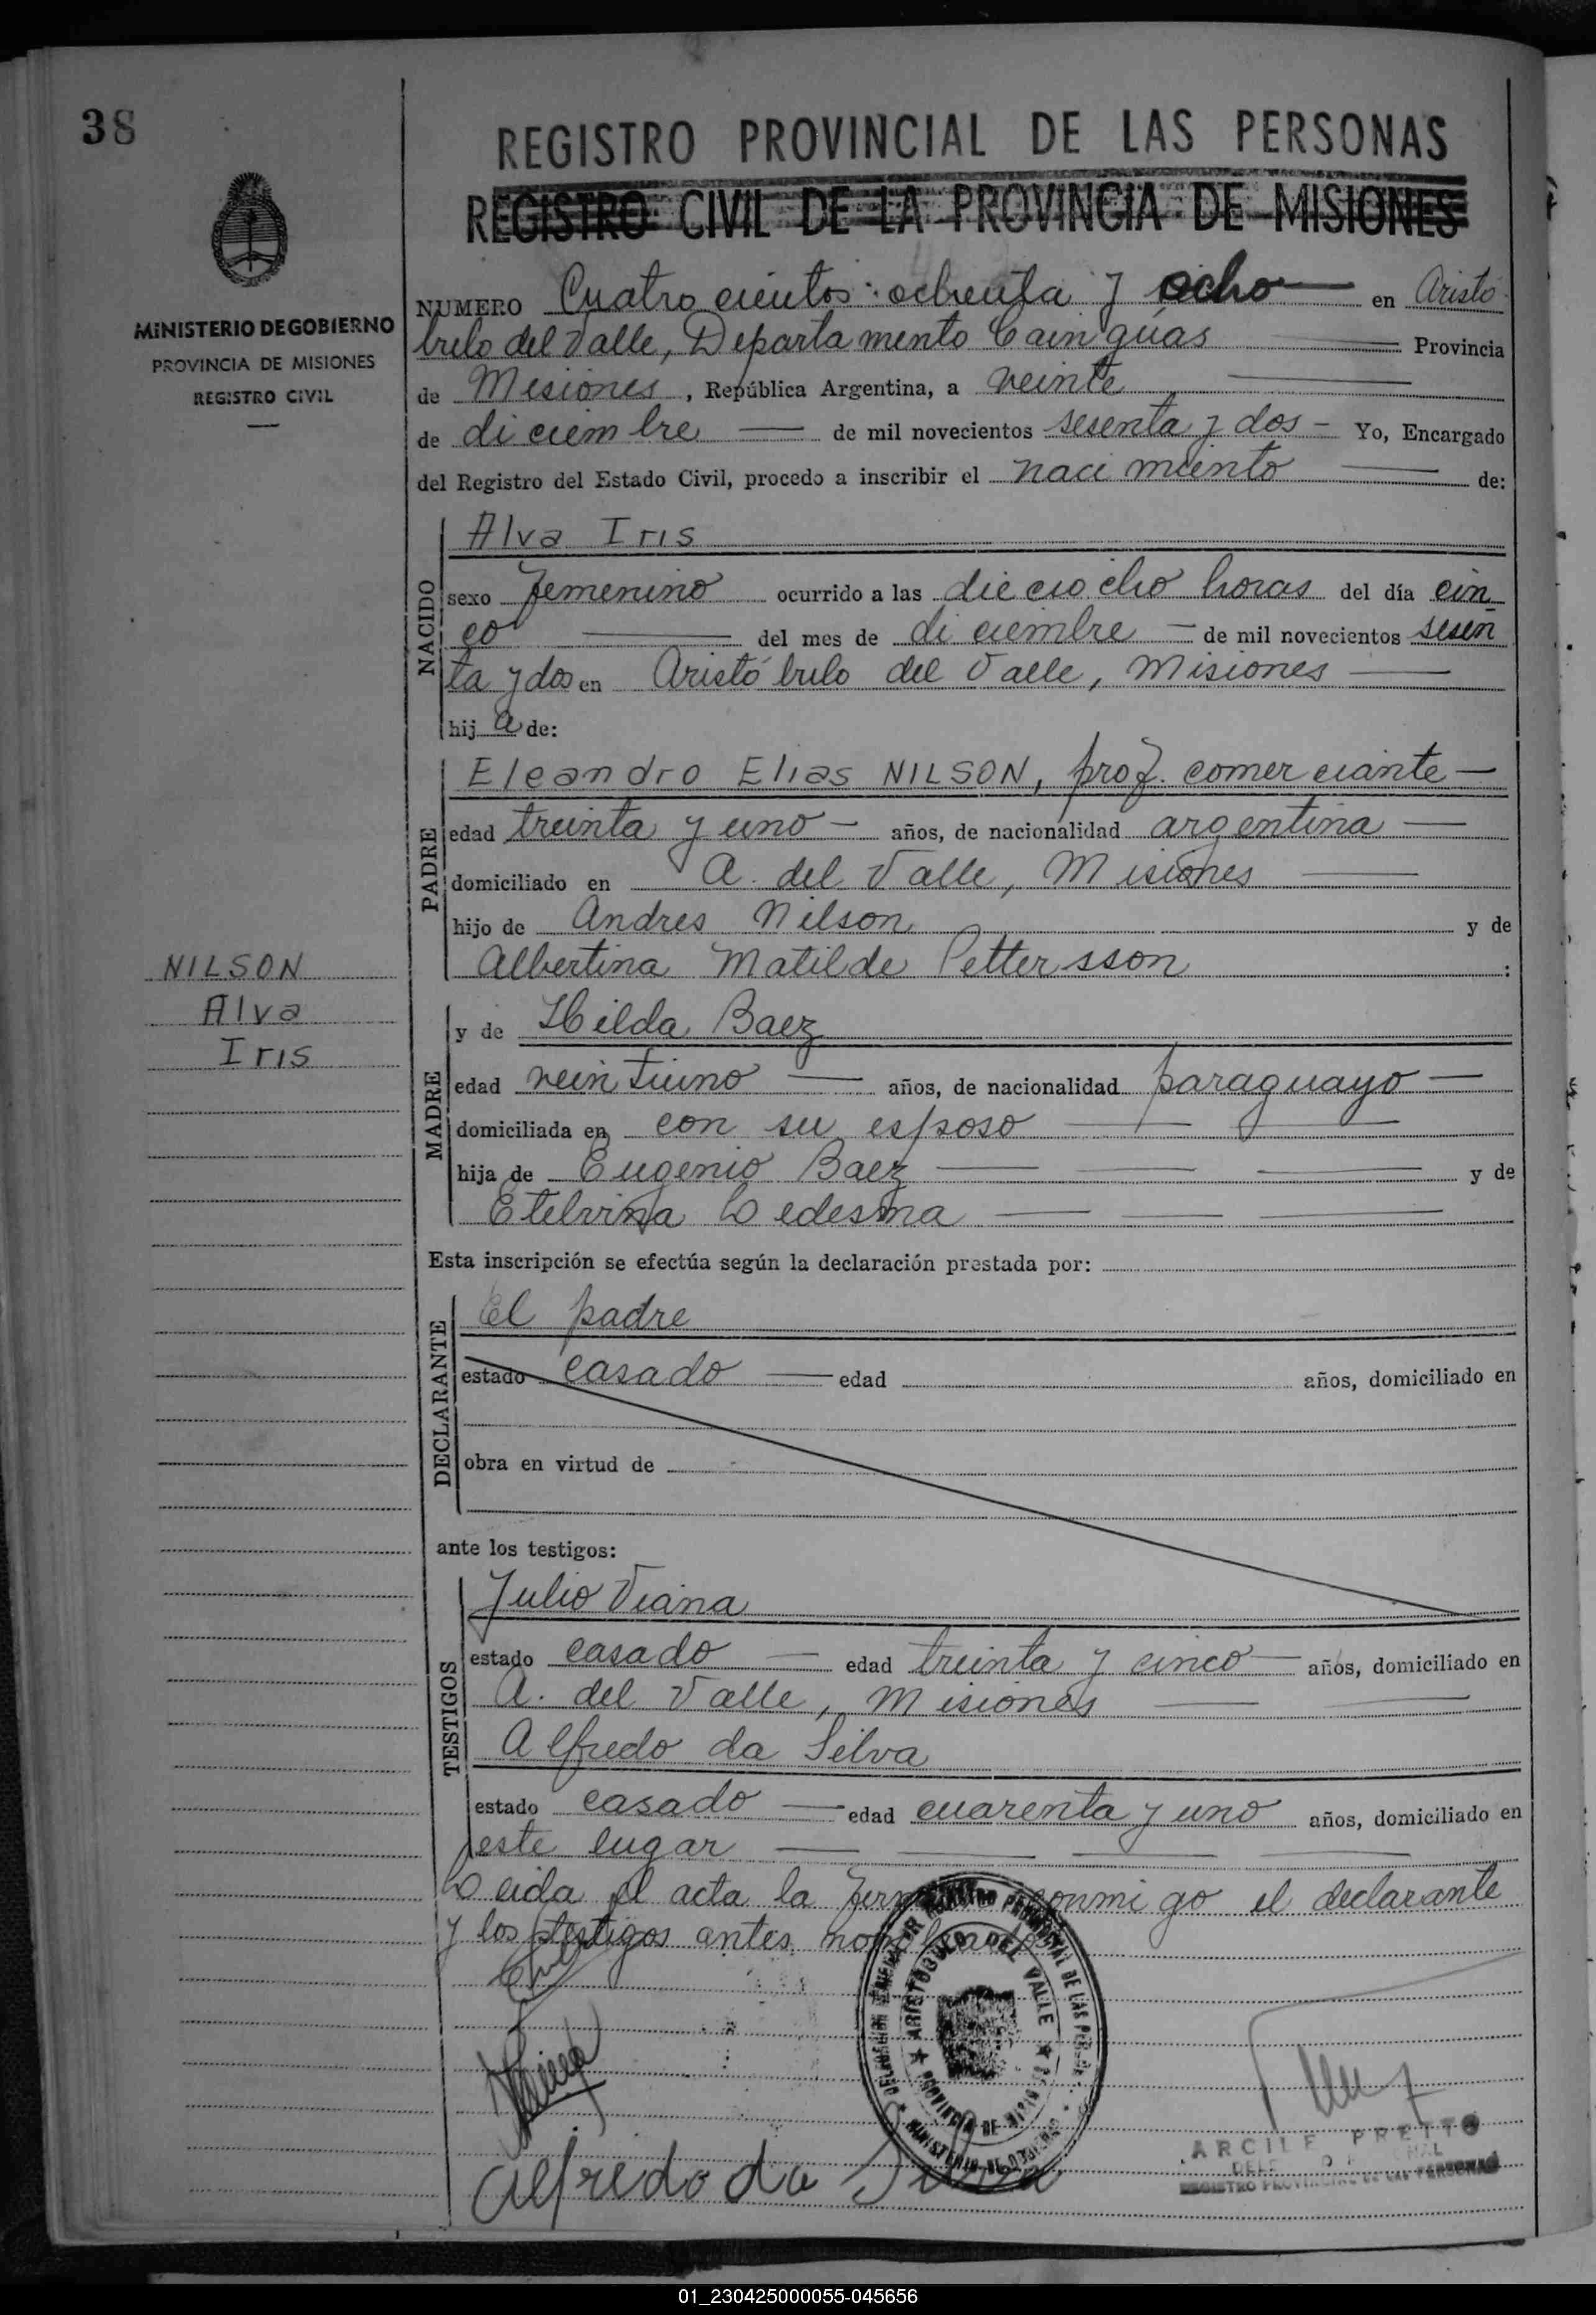 38
REGISTRO PROVINCIAL DE LAS PERSONAS
REGISTRO CIVIL DE LA PROVINCIA DE MISIONES
MINISTERIO DE GOBIERNO
PROVINCIA DE MISIONES
REGISTRO CIVIL
NUMERO Cuatro cientos ochenta y ocho en Aristó
bulo del Valle, Departamento Cainguás Provincia
de Misiones, República Argentina, a veinte
de diciembre de mil novecientos sesenta y dos Yo, Encargado
del Registro del Estado Civil, procedo a inscribir el nacimiento de:
NACIDO
Alva Iris
sexo femenino ocurrido a las dieciocho horas del día cin
co del mes de diciembre de mil novecientos sesen
ta y dos en Aristóbulo del Valle, Misiones
hij a de:
PADRE
Eleandro Elias NILSON, prof. comerciante
edad treinta y uno años, de nacionalidad argentina
domiciliado en A. del Valle, Misiones
hijo de Andres Nilson y de
Albertina Matilde Pettersson :
NILSON
Alva
Iris
MADRE
y de Hilda Baez
edad veintiuno años, de nacionalidad paraguayo
domiciliada en con su esposo
hija de Eugenio Baez y de
Etelvina Ledesma
Esta inscripción se efectúa según la declaración prestada por:
DECLARANTE
El padre
estado casado edad años, domiciliado en
obra en virtud de
ante los testigos:
TESTIGOS
Julio Viana
estado casado edad treinta y cinco años, domiciliado en
A. del Valle, Misiones
Alfredo da Silva
estado casado edad cuarenta y uno años, domiciliado en
este lugar
Leida el acta la conmigo el declarante
y los testigos antes
ARISTOBULO DEL VALLE
PROVINCIA DE MISIONES
MINISTERIO DE GOBIERNO
Alfredo da Silva
ARCILE PREITO
REGISTRO PROVINCIAL DE LAS PERSONAS
01_230425000055-045656